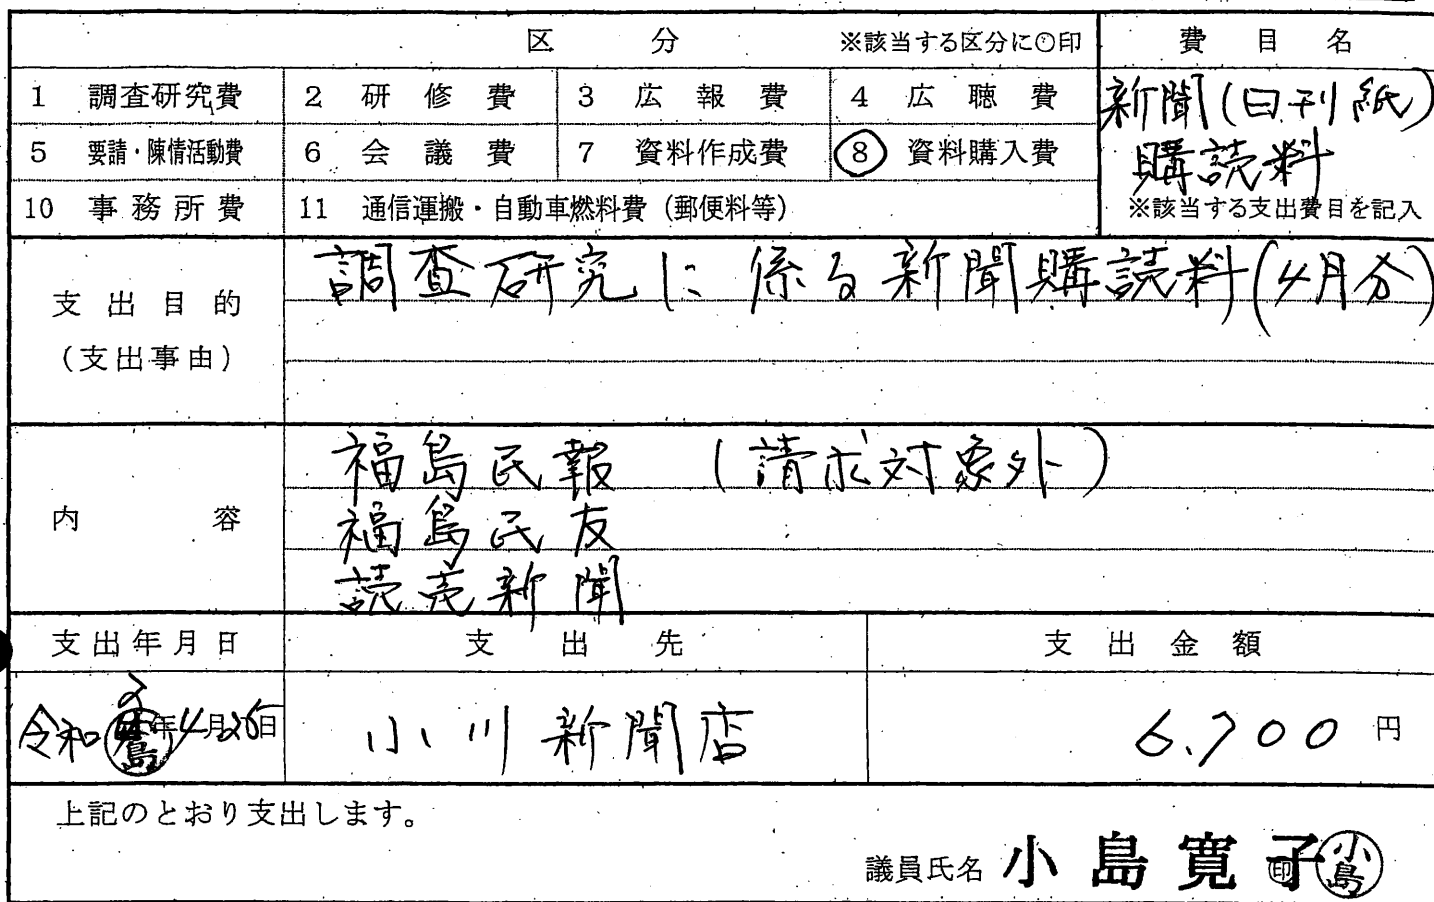 区 分 ※該当する区分に○印 費 目 名
1 調査研究費 2 研修費 3 広報費 4 広聴費 新聞(日刊紙)
5 要請・陳情活動費 6 会議費 7 資料作成費 8 資料購入費 購読料
10 事務所費 11 通信運搬・自動車燃料費(郵便料等) ※該当する支出費目を記入
支出目的 調査研究に係る新聞購読料(4月分)
(支出事由)
福島民報 (請求対象外)
内 容 福島民友
読売新聞
支出年月日 支 出 先 支 出 金 額
令和2年4月25日 小川新聞店 6.700 円
上記のとおり支出します。
議員氏名 小島寛子 印 小島